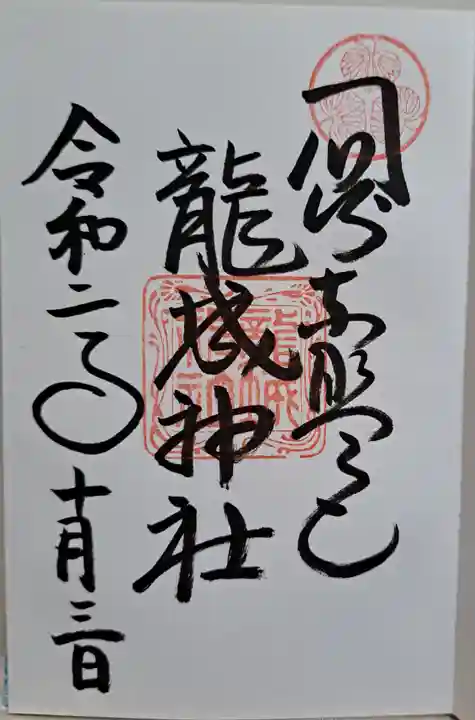 岡崎東照宮
龍城神社
令和二年十月三日